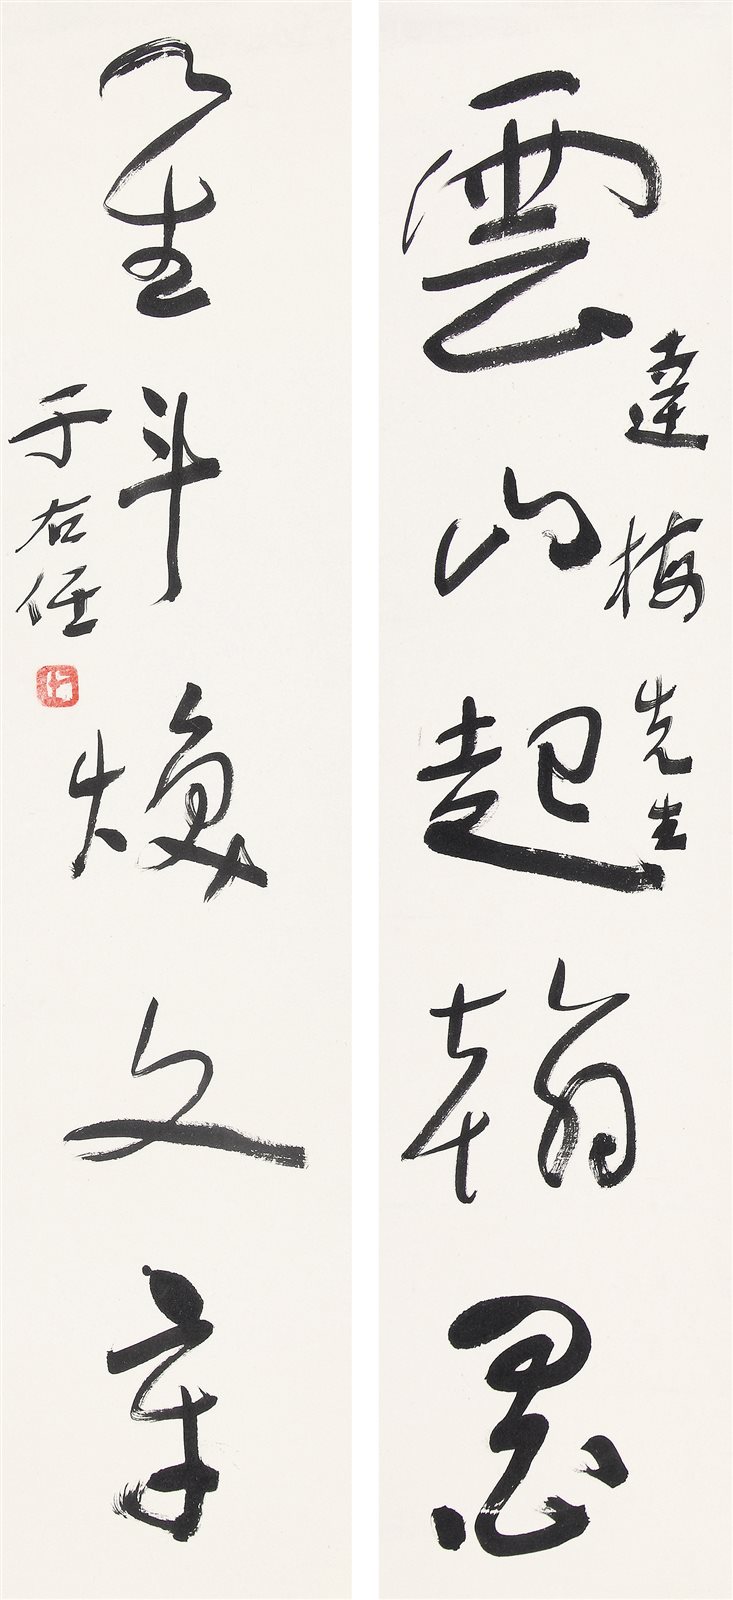 雲山起翰墨
達梅先生
星斗煥文章
于右任